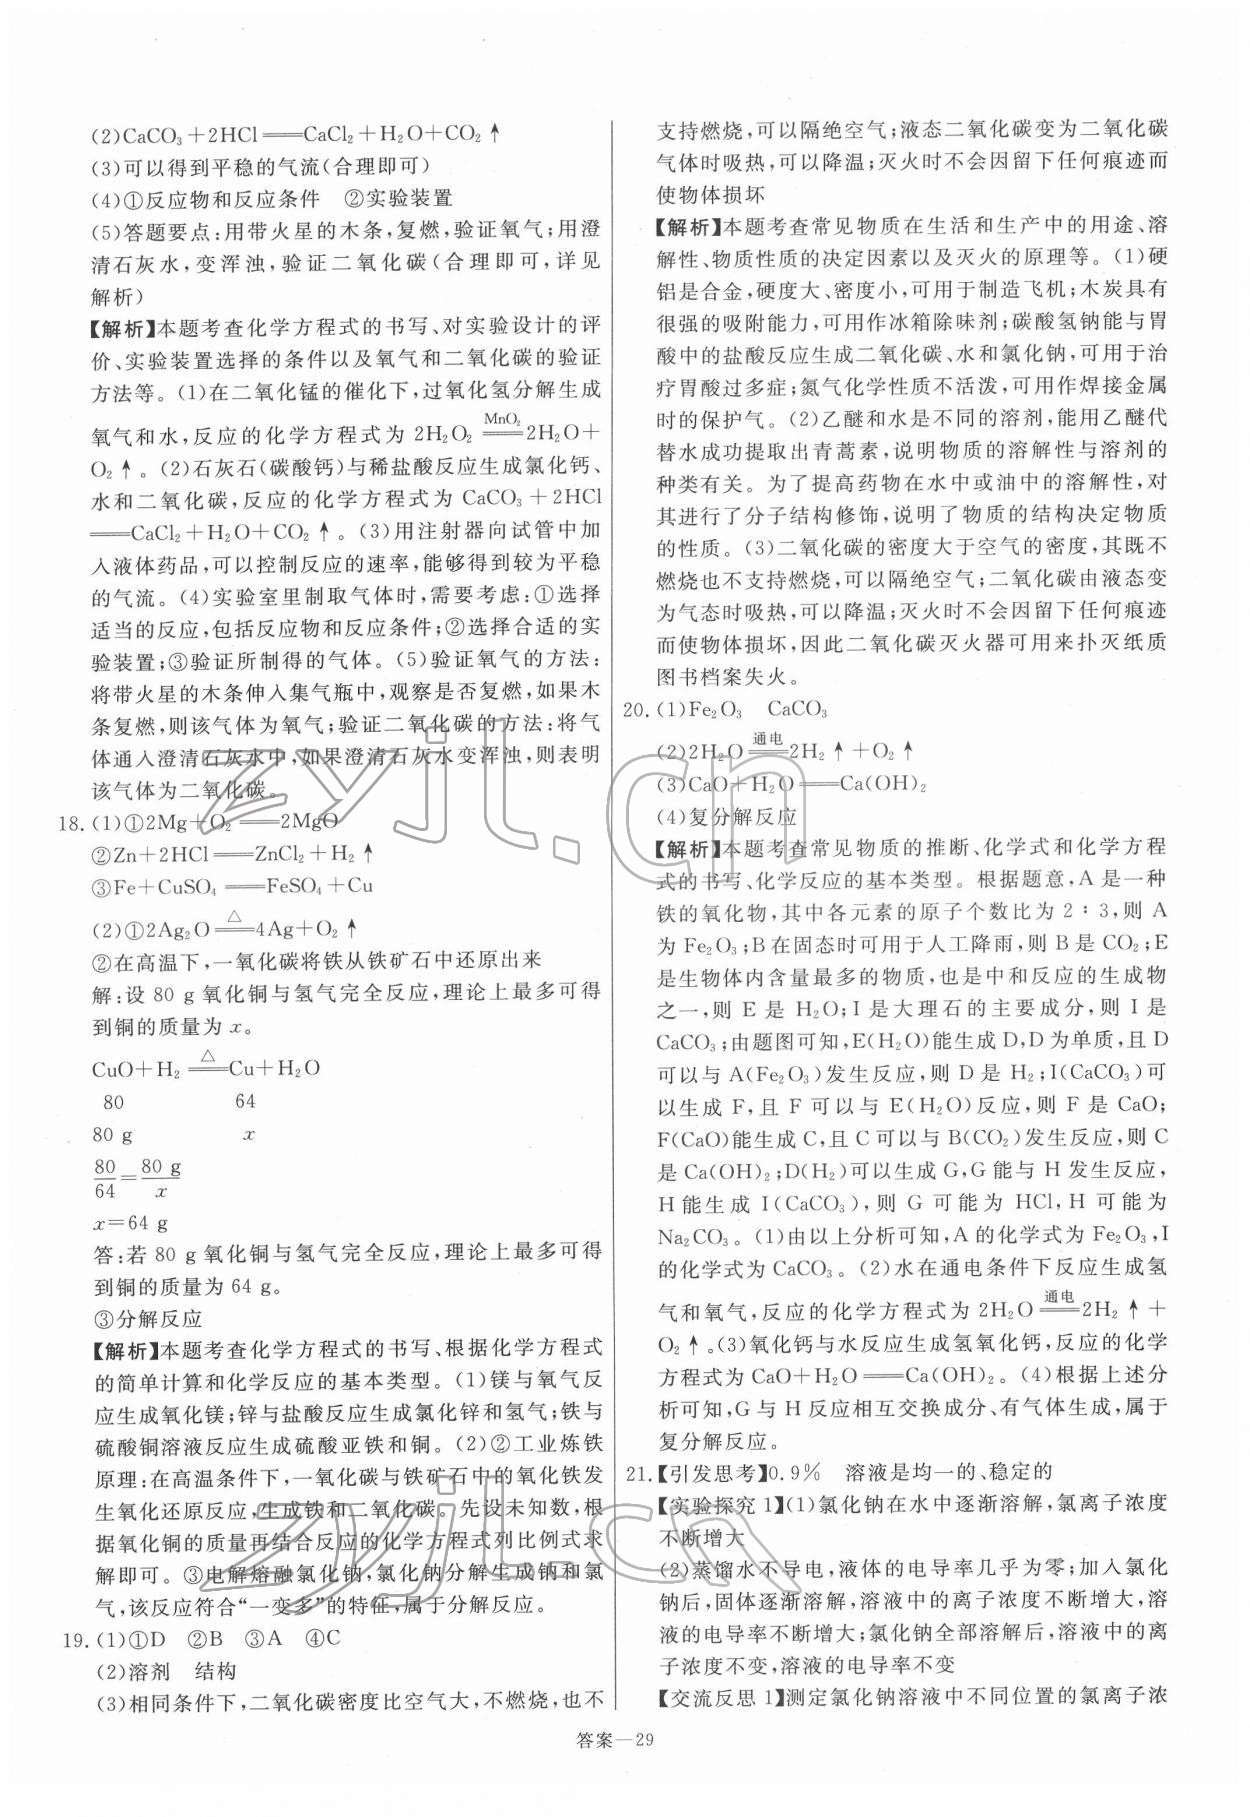 (2)CaCO₃+2HCl══CaCl₂+H₂O+CO₂↑
(3)可以得到平稳的气流(合理即可)
(4)①反应物和反应条件　②实验装置
(5)答题要点:用带火星的木条,复燃,验证氧气;用澄
清石灰水,变浑浊,验证二氧化碳(合理即可,详见
解析)
【解析】本题考查化学方程式的书写、对实验设计的评
价、实验装置选择的条件以及氧气和二氧化碳的验证
方法等。(1)在二氧化锰的催化下,过氧化氢分解生成
MnO₂
氧气和水,反应的化学方程式为 2H₂O₂══2H₂O+
O₂↑。(2)石灰石(碳酸钙)与稀盐酸反应生成氯化钙、
水和二氧化碳,反应的化学方程式为 CaCO₃+2HCl
══CaCl₂+H₂O+CO₂↑。(3)用注射器向试管中加
入液体药品,可以控制反应的速率,能够得到较为平稳
的气流。(4)实验室里制取气体时,需要考虑:①选择
适当的反应,包括反应物和反应条件;②选择合适的实
验装置;③验证所制得的气体。(5)验证氧气的方法:
将带火星的木条伸入集气瓶中,观察是否复燃,如果木
条复燃,则该气体为氧气;验证二氧化碳的方法:将气
体通入澄清石灰水中,如果澄清石灰水变浑浊,则表明
该气体为二氧化碳。
18.(1)①2Mg+O₂══2MgO
②Zn+2HCl══ZnCl₂+H₂↑
③Fe+CuSO₄══FeSO₄+Cu
△
(2)①2Ag₂O══4Ag+O₂↑
②在高温下,一氧化碳将铁从铁矿石中还原出来
解:设 80 g 氧化铜与氢气完全反应,理论上最多可得
到铜的质量为 x。
△
CuO+H₂══Cu+H₂O
80　　　　64
80 g　　　　x
80/64=80 g/x
x=64 g
答:若 80 g 氧化铜与氢气完全反应,理论上最多可得
到铜的质量为 64 g。
③分解反应
【解析】本题考查化学方程式的书写、根据化学方程式
的简单计算和化学反应的基本类型。(1)镁与氧气反
应生成氧化镁;锌与盐酸反应生成氯化锌和氢气;铁与
硫酸铜溶液反应生成硫酸亚铁和铜。(2)②工业炼铁
原理:在高温条件下,一氧化碳与铁矿石中的氧化铁发
生氧化还原反应,生成铁和二氧化碳。先设未知数,根
据氧化铜的质量再结合反应的化学方程式列比例式求
解即可。③电解熔融氯化钠,氯化钠分解生成钠和氯
气,该反应符合“一变多”的特征,属于分解反应。
19.(1)①D　②B　③A　④C
(2)溶剂　结构
(3)相同条件下,二氧化碳密度比空气大,不燃烧,也不
支持燃烧,可以隔绝空气;液态二氧化碳变为二氧化碳
气体时吸热,可以降温;灭火时不会因留下任何痕迹而
使物体损坏
【解析】本题考查常见物质在生活和生产中的用途、溶
解性、物质性质的决定因素以及灭火的原理等。(1)硬
铝是合金,硬度大、密度小,可用于制造飞机;木炭具有
很强的吸附能力,可用作冰箱除味剂;碳酸氢钠能与胃
酸中的盐酸反应生成二氧化碳、水和氯化钠,可用于治
疗胃酸过多症;氮气化学性质不活泼,可用作焊接金属
时的保护气。(2)乙醚和水是不同的溶剂,能用乙醚代
替水成功提取出青蒿素,说明物质的溶解性与溶剂的
种类有关。为了提高药物在水中或油中的溶解性,对
其进行了分子结构修饰,说明了物质的结构决定物质
的性质。(3)二氧化碳的密度大于空气的密度,其既不
燃烧也不支持燃烧,可以隔绝空气;二氧化碳由液态变
为气态时吸热,可以降温;灭火时不会因留下任何痕迹
而使物体损坏,因此二氧化碳灭火器可用来扑灭纸质
图书档案失火。
20.(1)Fe₂O₃　CaCO₃
通电
(2)2H₂O══2H₂↑+O₂↑
(3)CaO+H₂O══Ca(OH)₂
(4)复分解反应
【解析】本题考查常见物质的推断、化学式和化学方程
式的书写、化学反应的基本类型。根据题意,A 是一种
铁的氧化物,其中各元素的原子个数比为 2∶3,则 A
为 Fe₂O₃;B在固态时可用于人工降雨,则 B 是 CO₂;E
是生物体内含量最多的物质,也是中和反应的生成物
之一,则 E 是 H₂O;I 是大理石的主要成分,则 I 是
CaCO₃;由题图可知,E(H₂O)能生成 D,D 为单质,且 D
可以与 A(Fe₂O₃)发生反应,则 D 是 H₂;I(CaCO₃)可
以生成 F,且 F 可以与 E(H₂O)反应,则 F 是 CaO;
F(CaO)能生成 C,且 C 可以与 B(CO₂)发生反应,则 C
是 Ca(OH)₂;D(H₂)可以生成 G,G 能与 H 发生反应,
H 能生成 I(CaCO₃),则 G 可能为 HCl,H 可能为
Na₂CO₃。(1)由以上分析可知,A 的化学式为 Fe₂O₃,I
的化学式为 CaCO₃。(2)水在通电条件下反应生成氢
通电
气和氧气,反应的化学方程式为 2H₂O══2H₂↑+
O₂↑。(3)氧化钙与水反应生成氢氧化钙,反应的化学
方程式为 CaO+H₂O══Ca(OH)₂。(4)根据上述分
析可知,G 与 H 反应相互交换成分、有气体生成,属于
复分解反应。
21.【引发思考】0.9%　溶液是均一的、稳定的
【实验探究 1】(1)氯化钠在水中逐渐溶解,氯离子浓度
不断增大
(2)蒸馏水不导电,液体的电导率几乎为零;加入氯化
钠后,固体逐渐溶解,溶液中的离子浓度不断增大,溶
液的电导率不断增大;氯化钠全部溶解后,溶液中的离
子浓度不变,溶液的电导率不变
【交流反思 1】测定氯化钠溶液中不同位置的氯离子浓
答案—29
zyjl.cn
zyjl.cn